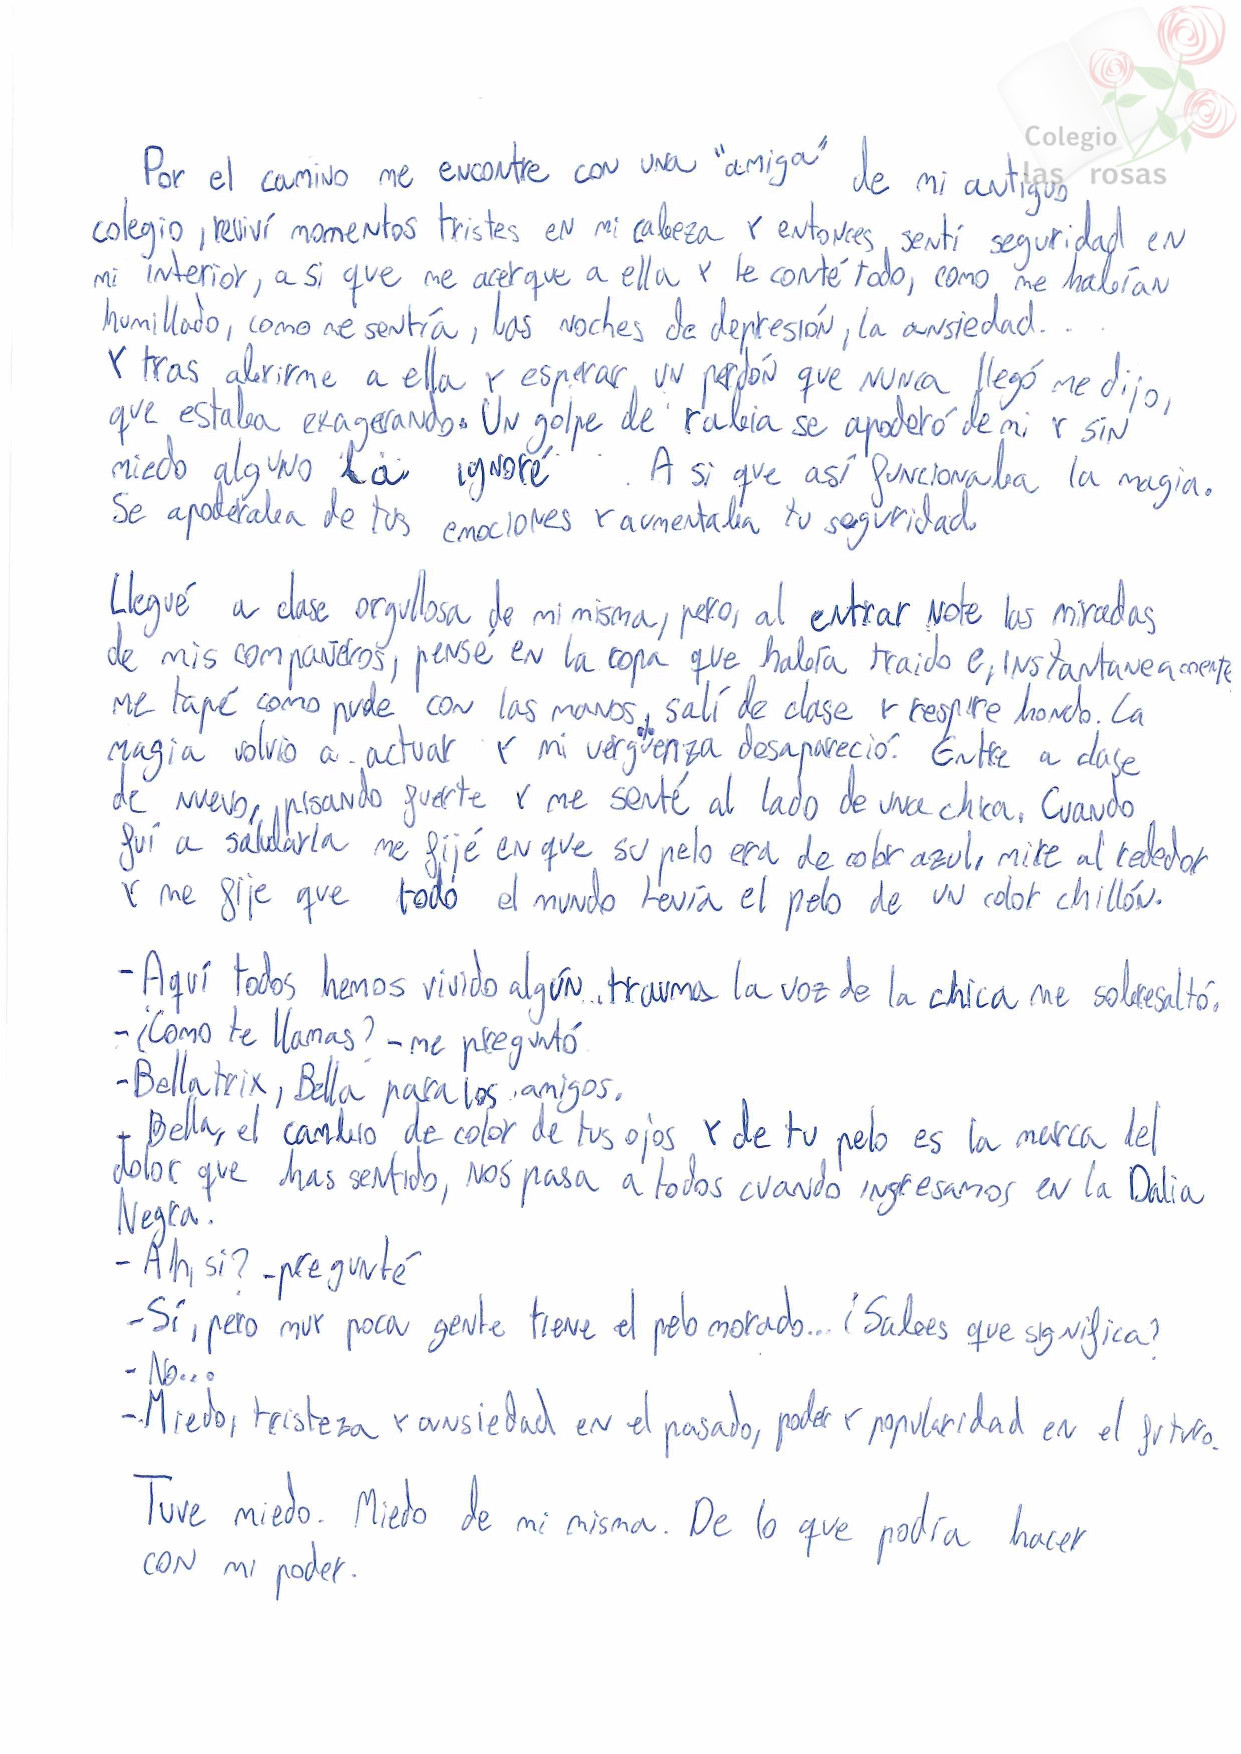 Colegio
las rosas
Por el camino me encontre con una "amiga" de mi antiguo
colegio, reviví momentos tristes en mi cabeza y entonces, sentí seguridad en
mi interior, a si que me acerque a ella y le conté todo, como me habían
humillado, como me sentía, las noches de depresión, la ansiedad...
Y tras abrirme a ella y esperar un perdón que nunca llegó me dijo,
que estaba exagerando. Un golpe de rabia se apoderó de mi y sin
miedo alguno la ignoré. A si que así funcionaba la magia.
Se apoderaba de tus emociones y aumentaba tu seguridad.
Llegué a clase orgullosa de mi misma, pero, al entrar note las miradas
de mis compañeros, pensé en la ropa que había traido e, instantaneamente
me tapé como pude con las manos, salí de clase y respire hondo. La
magia volvio a actuar y mi vergüenza desapareció. Entre a clase
de nuevo, pisando fuerte y me senté al lado de una chica. Cuando
fuí a saludarla me fijé en que su pelo era de color azul, mire al rededor
y me fije que todo el mundo tenía el pelo de un color chillón.
-Aquí todos hemos vivido algún trauma la voz de la chica me sobresaltó.
-¿Como te llamas? -me preguntó
-Bellatrix, Bella para los amigos.
- Bella, el cambio de color de tus ojos y de tu pelo es la marca del
dolor que has sentido, nos pasa a todos cuando ingresamos en la Dalia
Negra.
- Ah, si? -pregunté
-Sí, pero muy poca gente tiene el pelo morado... ¿Sabes que significa?
- No...
-Miedo, tristeza y ansiedad en el pasado, poder y popularidad en el futuro.
Tuve miedo. Miedo de mi misma. De lo que podía hacer
con mi poder.